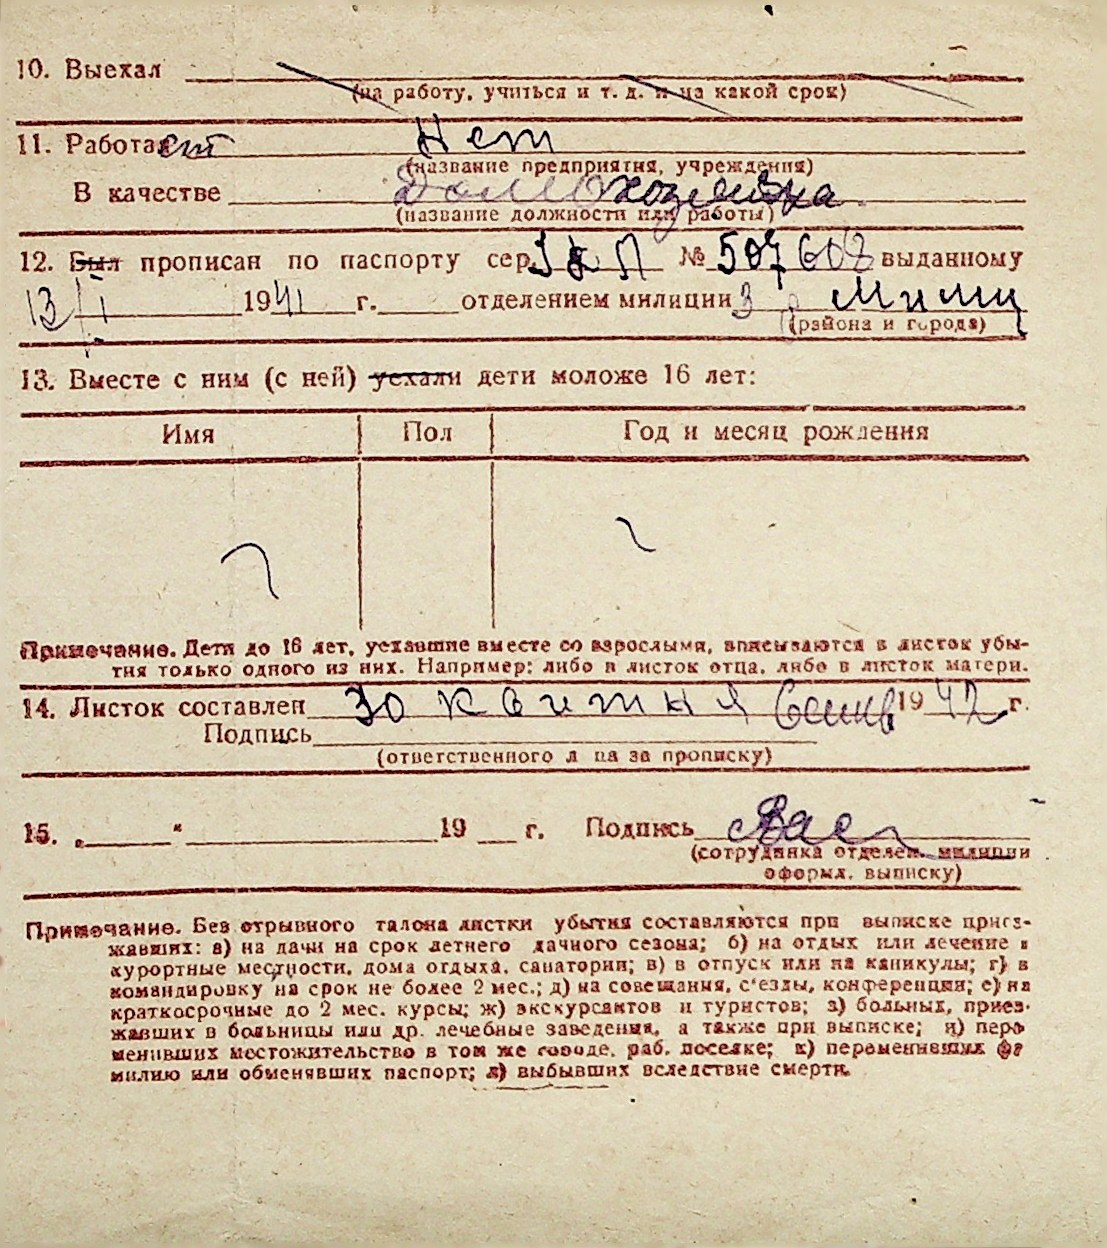 10. Выехал
(на работу, учиться и т. д. и на какой срок)
11. Работает Нет
(название предприятия, учреждения)
В качестве Домохозяйка
(название должности или работы)
12. Был прописан по паспорту сер. № 507608 выданному
13/I 1941 г. отделением милиции 3 Милиц
(района и города)
13. Вместе с ним (с ней) уехали дети моложе 16 лет:
Имя Пол Год и месяц рождения
Примечание. Дети до 16 лет, уехавшие вместе со взрослыми, вписываются в листок убы-
тия только одного из них. Например: либо в листок отца, либо в листок матери.
14. Листок составлен 30 квитня 1942 г.
Подпись
(ответственного лица за прописку)
15. „ “ 19 г. Подпись
(сотрудника отделен. милиции
оформл. выписку)
Примечание. Без отрывного талона листки убытия составляются при выписке приез-
жавших: а) на дачи на срок летнего дачного сезона; б) на отдых или лечение в
курортные местности, дома отдыха, санатории; в) в отпуск или на каникулы; г) в
командировку на срок не более 2 мес.; д) на совещания, с'езды, конференции; е) на
краткосрочные до 2 мес. курсы; ж) экскурсантов и туристов; з) больных, приез-
жавших в больницы или др. лечебные заведения, а также при выписке; и) пере
менивших местожительство в том же городе, раб. поселке; к) переменивших фа
милию или обменявших паспорт; л) выбывших вследствие смерти.